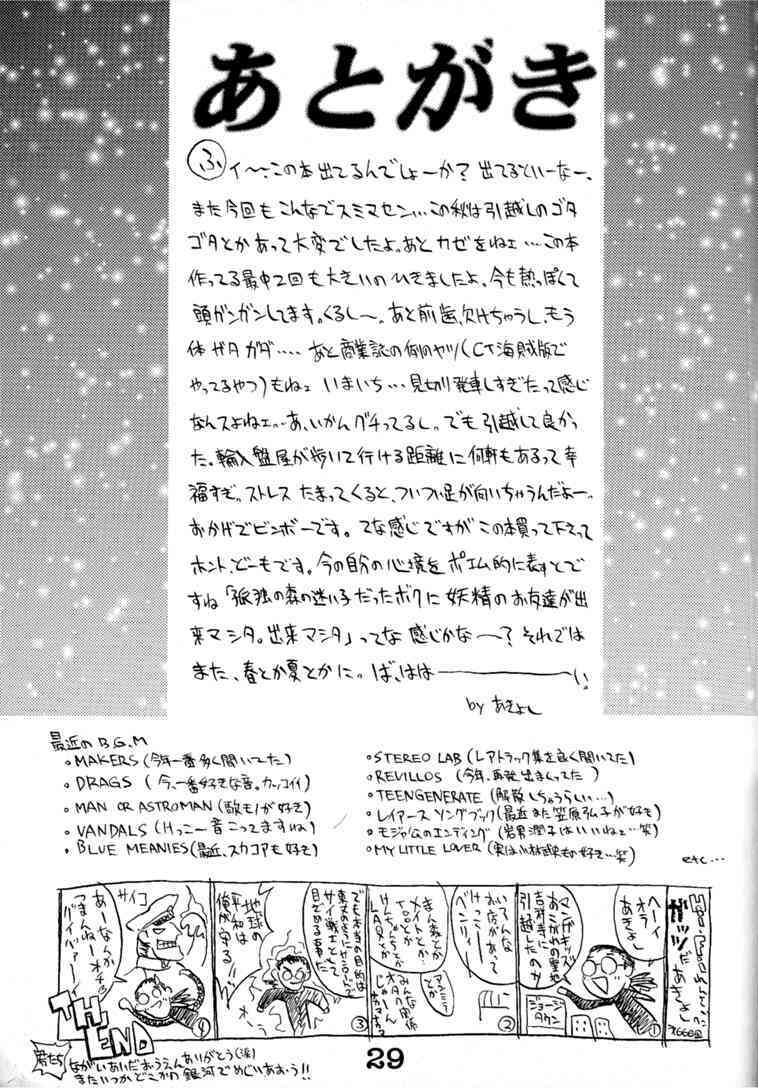 あとがき
ふィ〜、この本出てるんでしょーか？出てるといーなー、
また今回もこんなでスミマセン…この秋は引越しのゴタ
ゴタとかあって大変でしたよ。あとカゼをねェ…この本
作ってる最中2回も大きいのひきましたよ、今も熱っぽくて
頭ガンガンしてます。くるし〜。あと前歯欠けちゃうし、もう
体ガタガタ‥‥あと商業誌の例のヤツ(CT海賊版で
やってるやつ)もねェいまいち…見切り発車しすぎたって感じ
なんスよねェ…あ、いかんグチってるし。でも引越して良かっ
た。輸入盤屋が歩いて行ける距離に何軒もあるって幸
福すぎ。ストレスたまってくると、ついつい足が向いちゃうんだよー。
おかげでビンボーです。てな感じですがこの本買って下さって
ホントどーもです。今の自分の心境をポエム的に表すとで
すね「孤独の森の迷い子だったボクに妖精のお友達が出
来マシタ。出来マシタ」ってな感じかな〜？それでは
また、春とか夏とかに。ば、はは――――い。
by あきよし
最近のB.G.M
•MAKERS(今年一番多く聞いてた)
•DRAGS(今、一番好きな音。カッコイイ)
•MAN OR ASTROMAN(敵モノが好き)
•VANDALS(けっこー音こってますね)
•BLUE MEANIES(最近、スカコアも好き)
•STEREO LAB(レアトラック集を良く聞いてた)
•REVILLOS(今年、再発出まくってた)
•TEENGENERATE(解散しちゃうらしい…)
•レイアース ソングブック(最近また笠原弘子が好も)
•モジャ公のエンディング(岩男潤子はいいねェ…笑)
•MY LITTLE LOVER(実は小林武史も好き…笑)
etc…
ガッツだあきよし
第666回
ヘーイ
オラ
あきよし
マンガキッズ
あこがれの聖地
吉祥寺に
引越したのさ
ジョージ
タウン
①
いろんな
お店があって
けっこー
ベンリィ
②
まんだとか
メイトとか
でも本当の目的は
地球の
平和は
俺が守る!!
③
サイコ
あーなんか
つまんねーオチ
グイバァーイ
④
TH END
君たち
ながいあいだおうえんありがとう(涙)
またいつかどこかの銀河でめぐりあおう!!
29